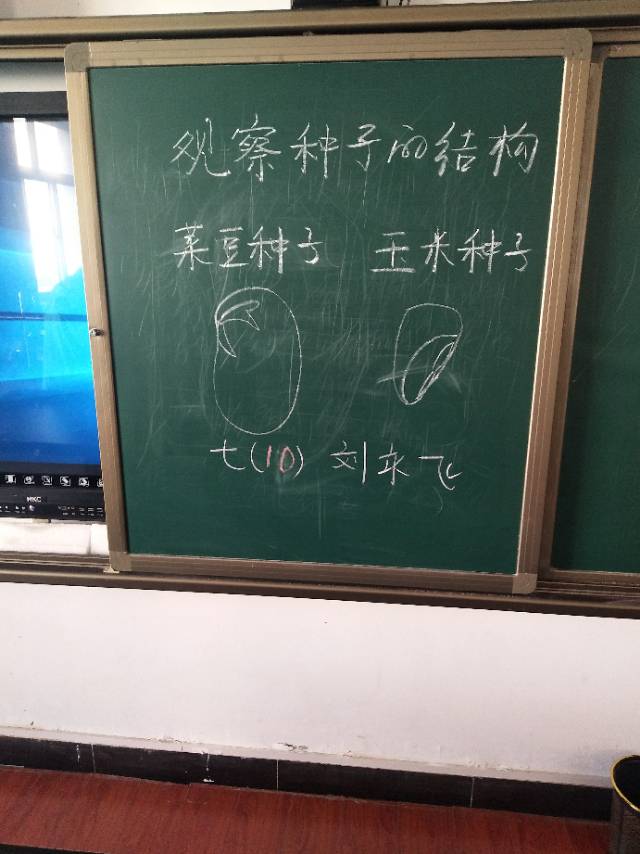 观察种子的结构
菜豆种子 玉米种子
七(10) 刘来飞
HKC